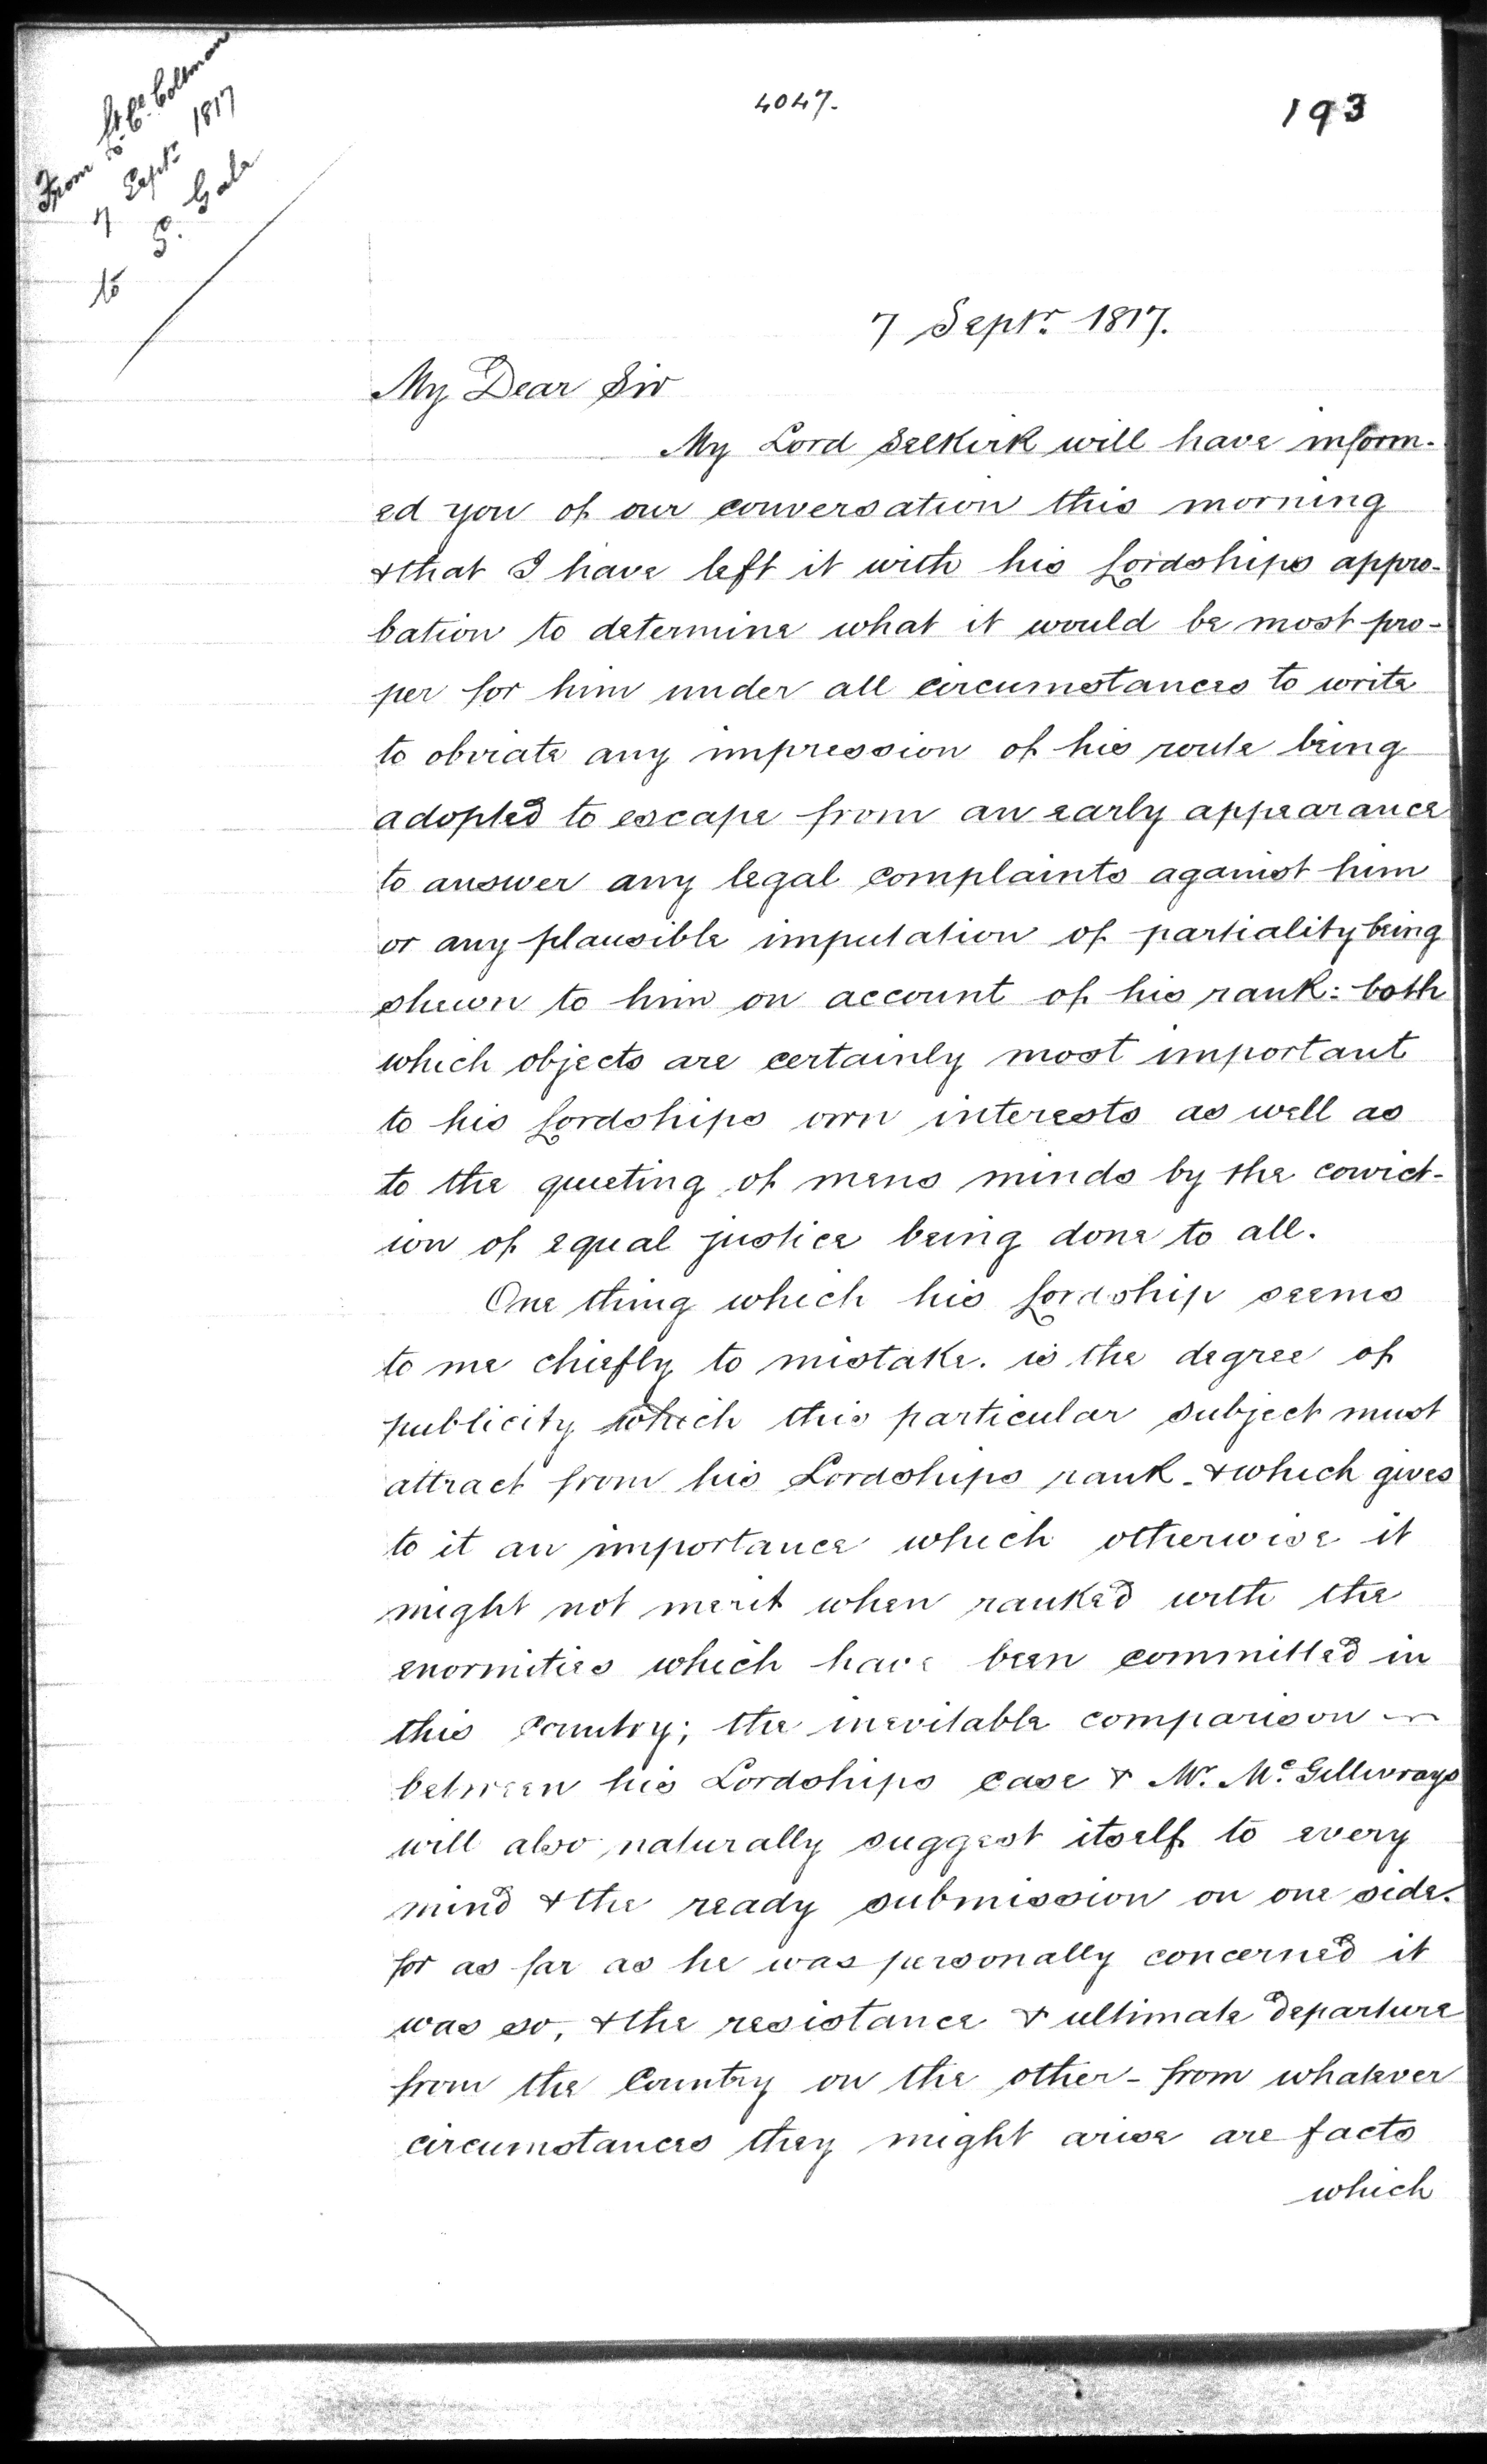 From Lt. Cl. Coltman
7 Septr. 1817
to S. Gale
4047.
193
7 Septr. 1817.
My Dear Sir
My Lord Selkirk will have inform-
ed you of our conversation this morning
& that I have left it with his Lordships appro-
bation to determine what it would be most pro-
per for him under all circumstances to write
to obviate any impression of his route being
adopted to escape from an early appearance
to answer any legal complaints against him
or any plausible imputation of partiality being
shewn to him on account of his rank: both
which objects are certainly most important
to his Lordships own interests as well as
to the quieting of mens minds by the convict-
ion of equal justice being done to all.
One thing which his Lordship seems
to me chiefly to mistake. is the degree of
publicity which this particular subject must
attract from his Lordships rank - & which gives
to it an importance which otherwise it
might not merit when ranked with the
enormities which have been committed in
this Country; the inevitable comparison
between his Lordships case & Mr. McGillivrays
will also naturally suggest itself to every
mind & the ready submission on one side.
for as far as he was personally concerned it
was so, & the resistance & ultimate departure
from the Country on the other - from whatever
circumstances they might arise are facts
which